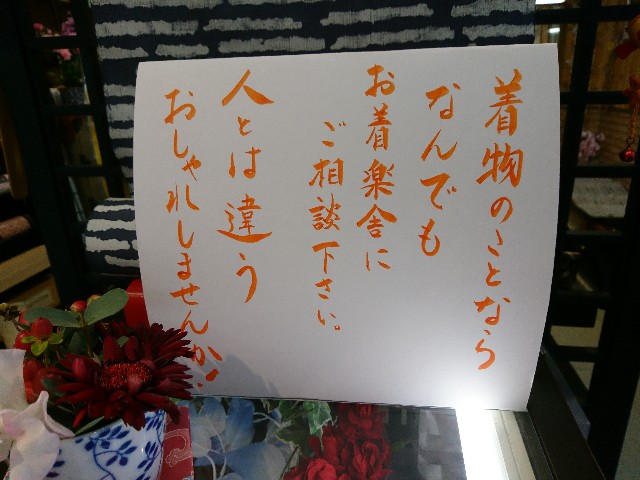 着物のことなら
なんでも
お着楽舎に
ご相談下さい。
人とは違う
おしゃれしませんか!